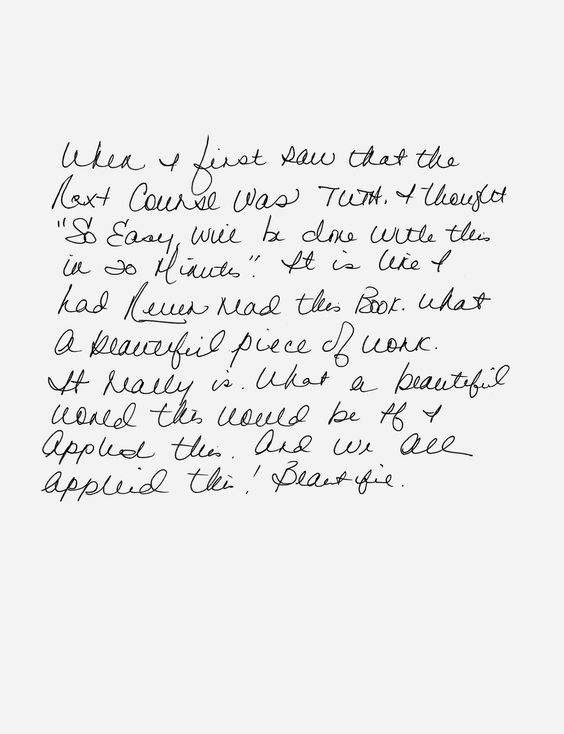 When I first saw that the
Next Course was TWTH. I thought
"So Easy, will be done with this
in 20 Minutes". It is like I
had Never read this Book. What
a beautiful piece of work.
It really is. What a beautiful
world this would be If I
Applied this. And We All
applied this! Beautiful.